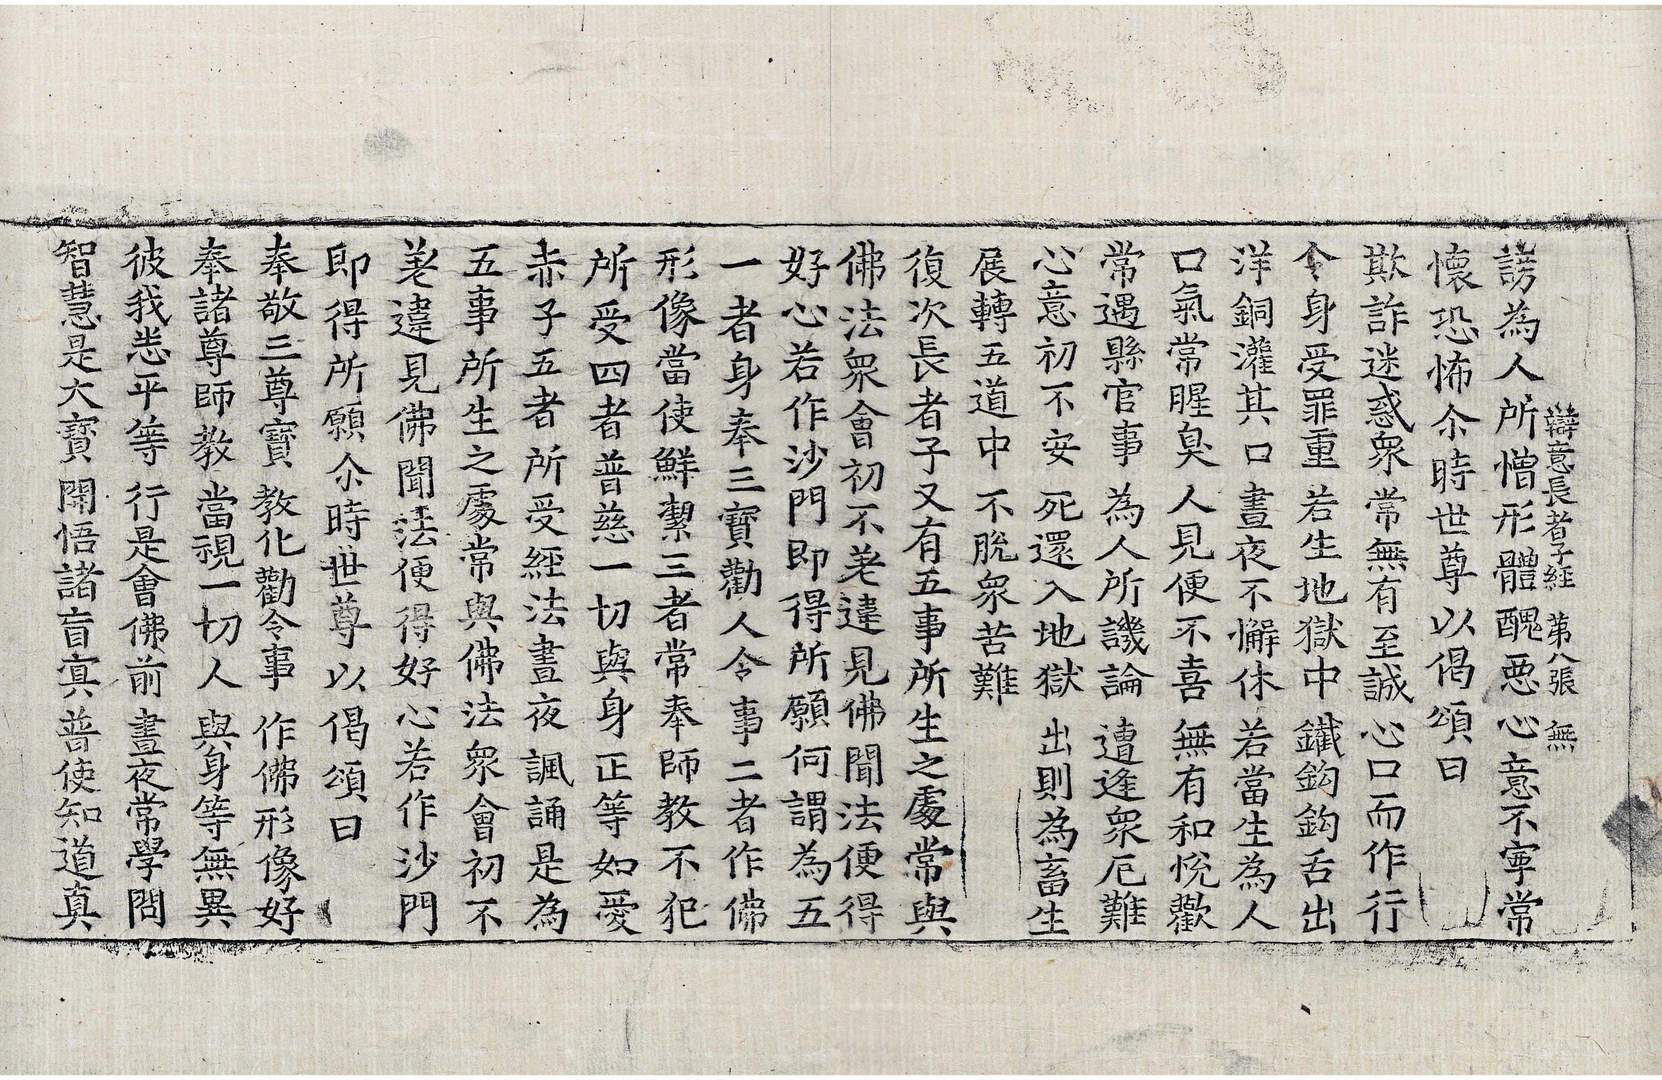 謗為人所憎形體醜惡心意不寧常
辯意長者子經 第八張 無
懷恐怖尒時世尊以偈頌曰
欺詐迷惑衆 常無有至誠 心口而作行
令身受罪重 若生地獄中 鐵鈎鈎舌出
洋銅灌其口 晝夜不懈休 若當生為人
口氣常腥臭 人見便不喜 無有和悅歡
常遇縣官事 為人所譏論 遭逢衆厄難
心意初不安 死還入地獄 出則為畜生
展轉五道中 不脫衆苦難
復次長者子又有五事所生之處常與
佛法衆會初不差違見佛聞法便得
好心若作沙門即得所願何謂為五
一者身奉三寶勸人令事二者作佛
形像當使鮮潔三者常奉師教不犯
所受四者普慈一切與身正等如愛
赤子五者所受經法晝夜諷誦是為
五事所生之處常與佛法衆會初不
差違見佛聞法便得好心若作沙門
即得所願尒時世尊以偈頌曰
奉敬三尊寶 教化勸令事 作佛形像好
奉諸尊師教 當視一切人 與身等無異
彼我悉平等 行是會佛前 晝夜常學問
智慧是大寶 開悟諸盲冥 普使知道真